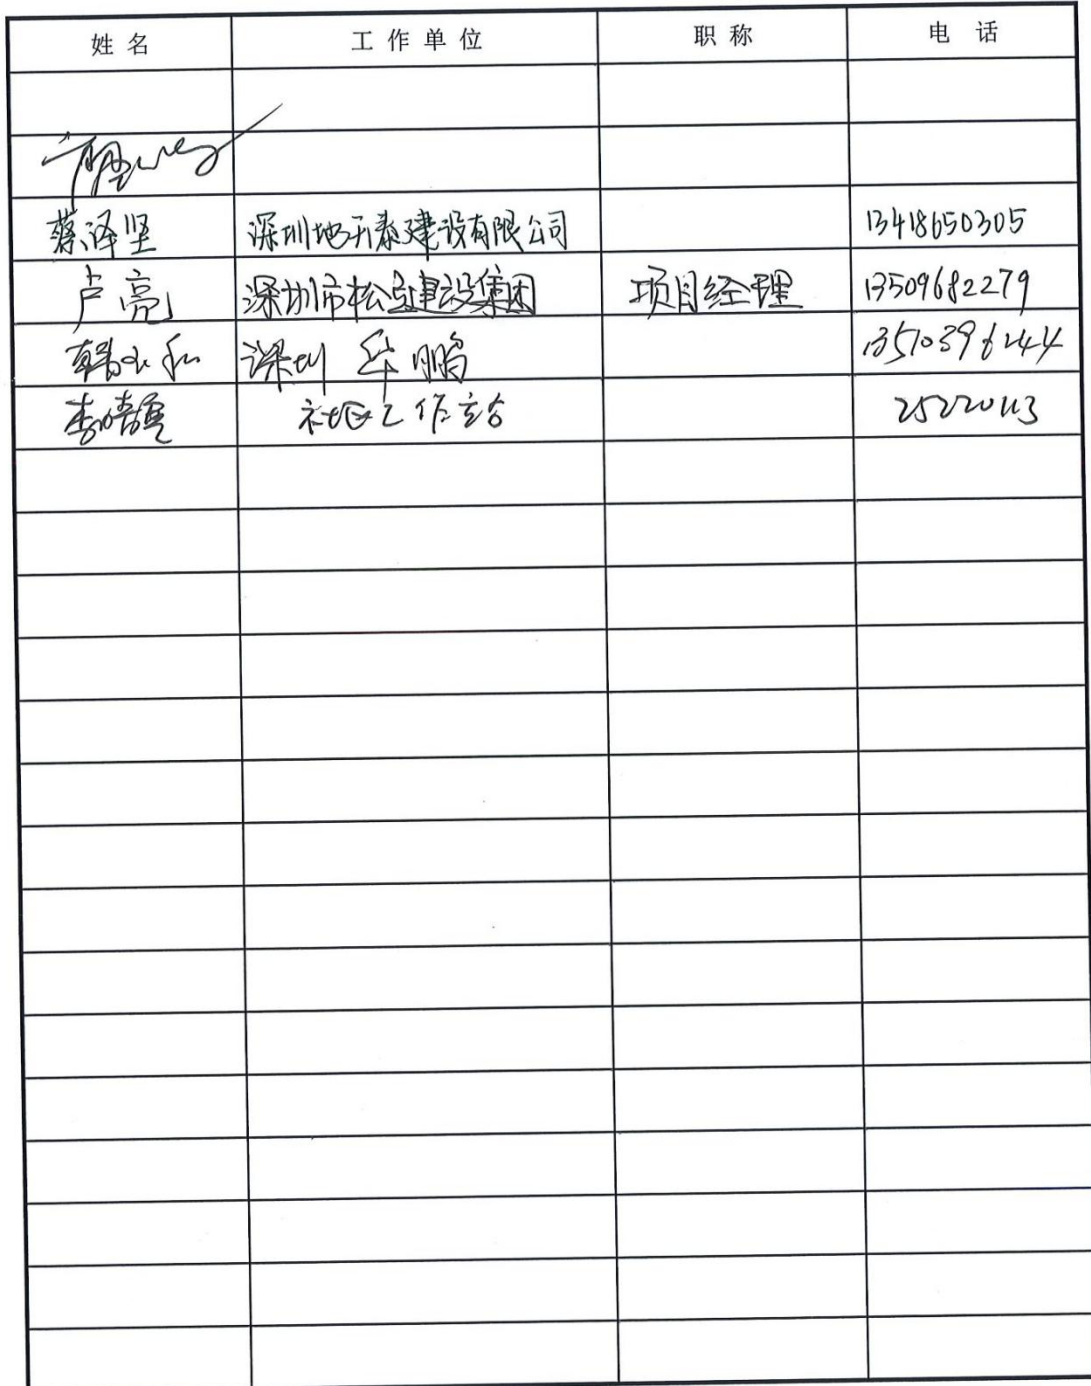 姓名 工作单位 职称 电话
蔡泽坚 深圳地天泰建设有限公司 13418650305
卢亮 深圳市松宝建设集团 项目经理 13509682279
韩 深圳 华鹏 13510396144
李 社区工作站